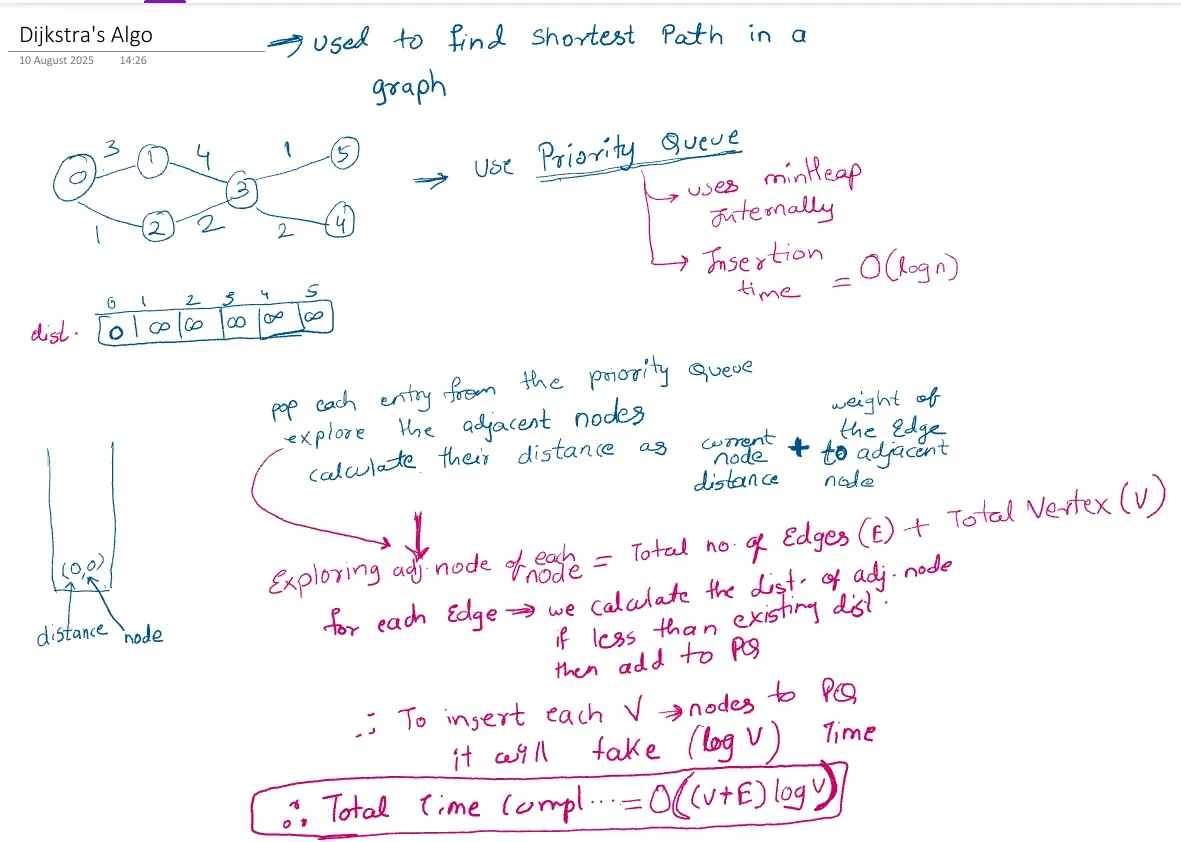 Dijkstra's Algo
10 August 2025 14:26
→ used to find shortest Path in a
graph
0 3 1 4 3 1 5
1 2 2 2 4
→ use Priority Queue
→ uses minHeap
Internally
→ Insertion
time = O(log n)
0 1 2 3 4 5
dist. 0 ∞ ∞ ∞ ∞ ∞
pop each entry from the priority Queue
explore the adjacent nodes
calculate their distance as current node distance + weight of the Edge to adjacent node
(0,0)
distance node
Exploring adj. node of each node = Total no. of Edges (E) + Total Vertex (V)
for each Edge → we calculate the dist. of adj. node
if less than existing dist.
then add to PQ
∴ To insert each V → nodes to PQ
it will take (log V) Time
∴ Total Time Compl... = O((V+E) log V)